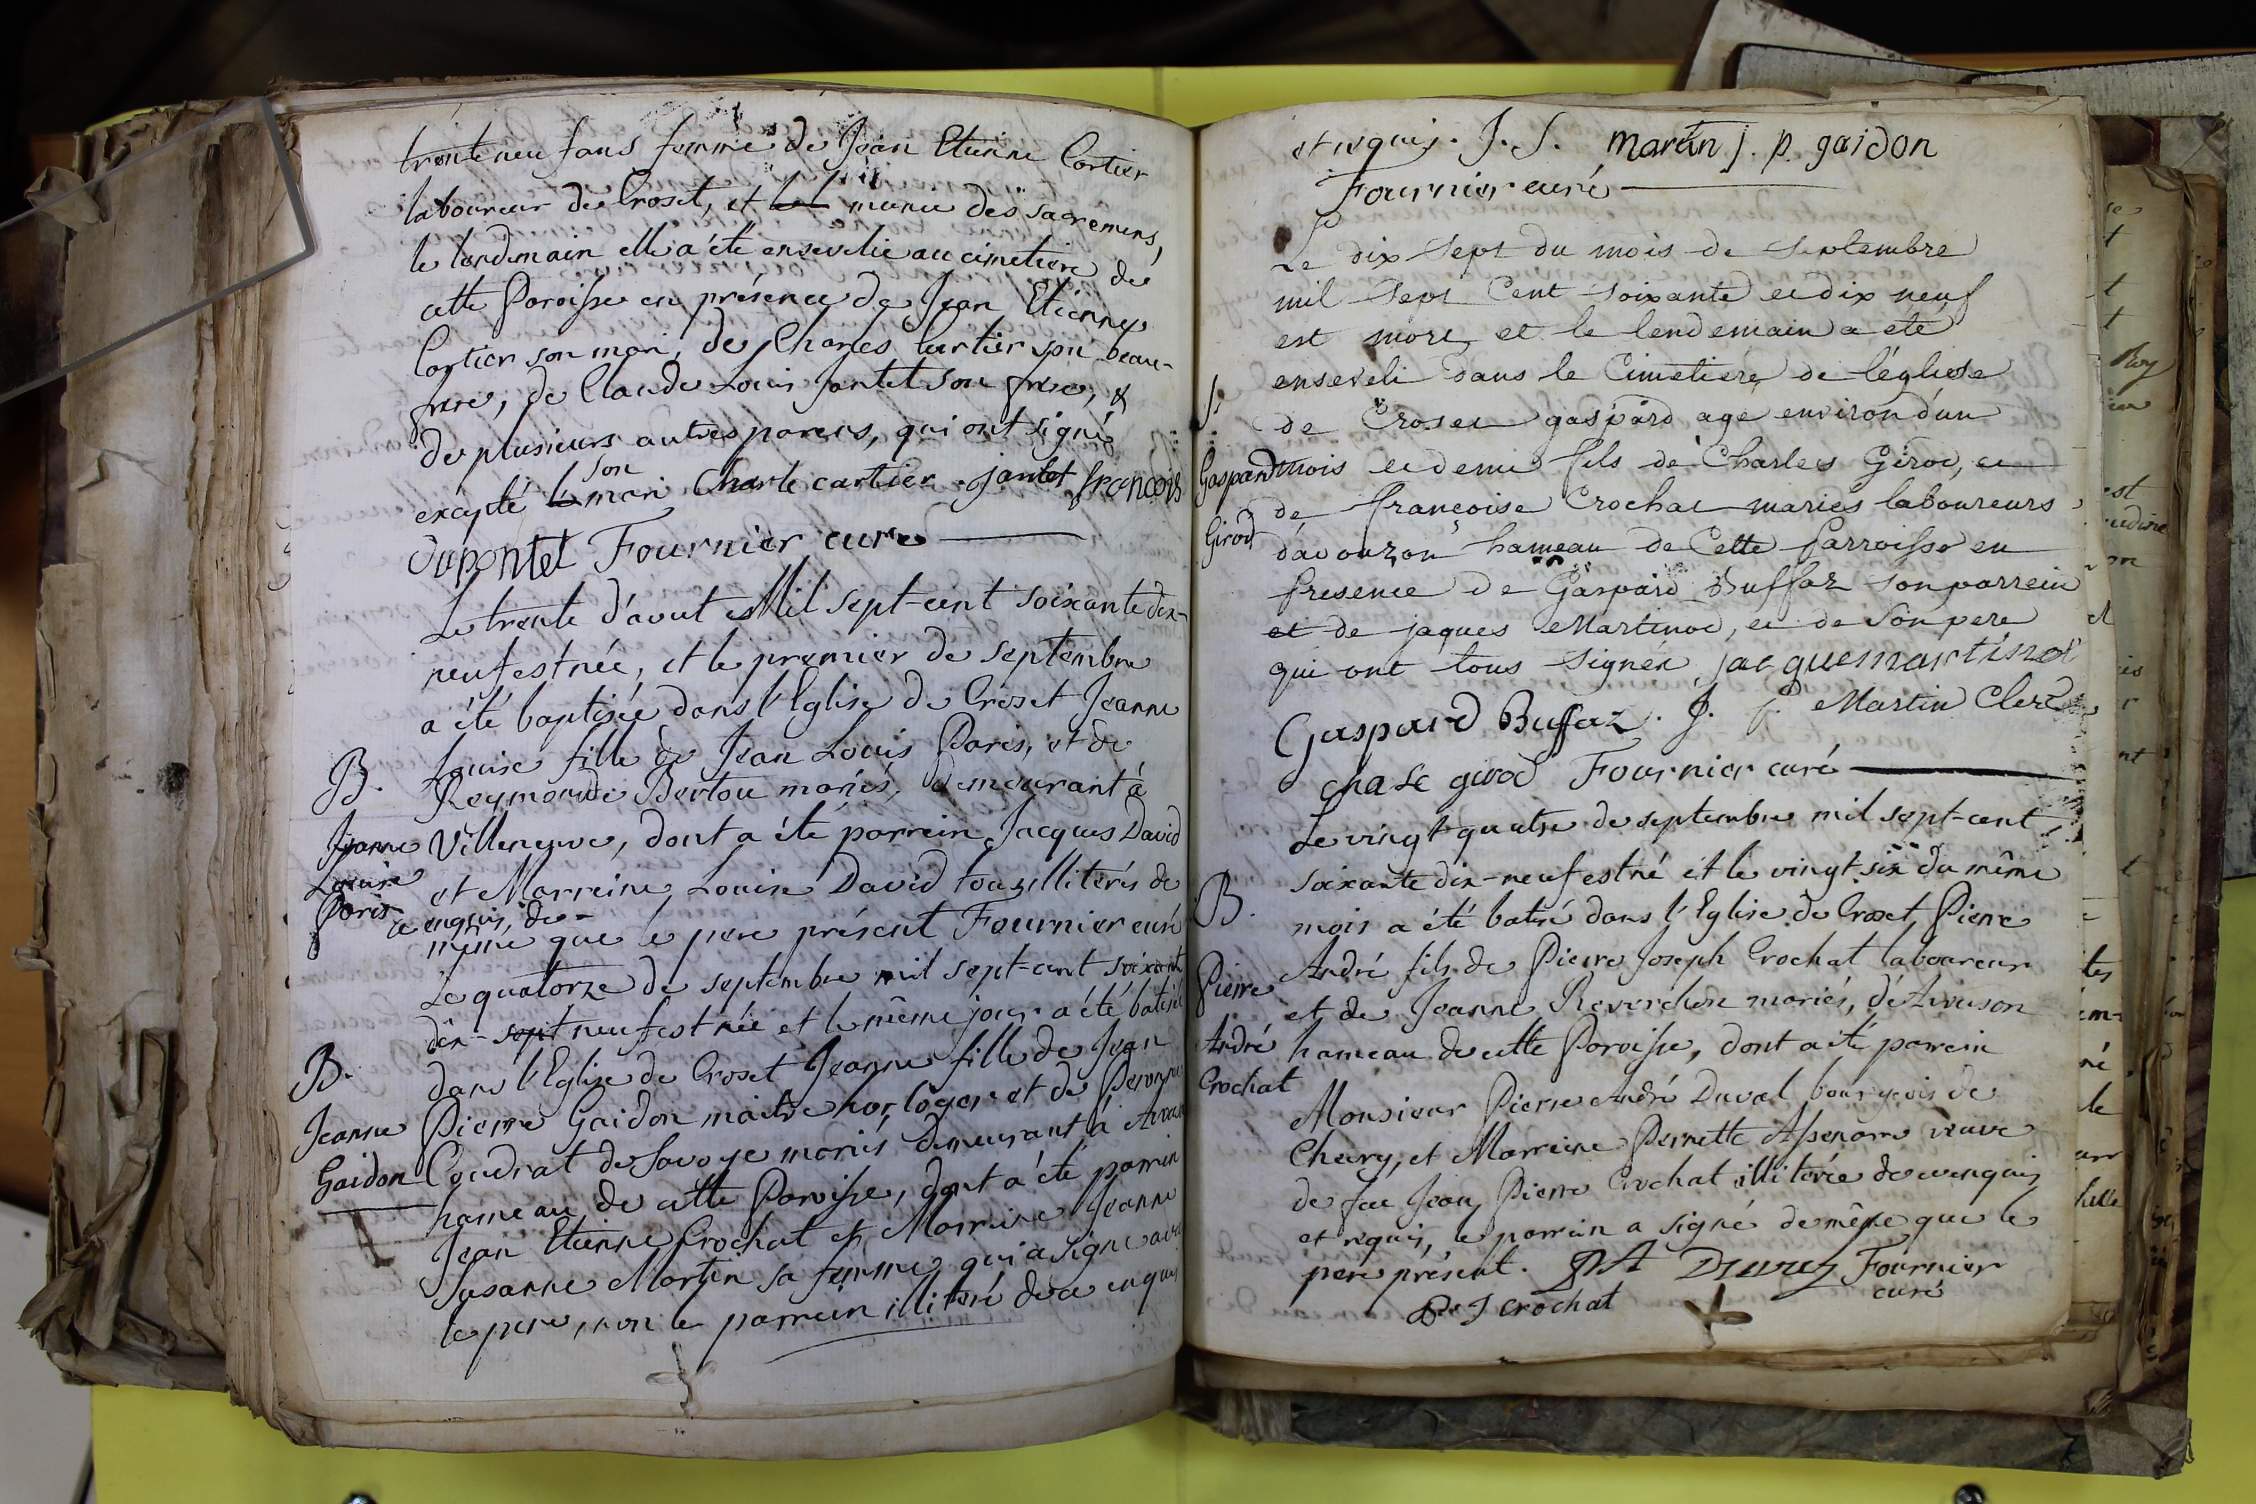 trente neuf ans femme de Jean Etienne Cartier
laboureur de Croset, et munie des sacremens,
le lendemain elle a été ensevelie au cimetiere de
cette Paroisse en présence de Jean Etienne
Cartier son mari, de Charles Cartier son beau-
frere, de Claude Louis Jantet son frere, &
de plusieurs autres parens, qui ont signé
excepté le son mari Charle cartier . jantet françois
dupontet Fournier curé
Le trente d'aout Mil sept-cent soixante dix-
neuf est née, et le premier de septembre
a été baptisée dans l'Eglise de Croset Jeanne
B. Louise fille de Jean Louis Paris, et de
Reymonde Bertou mariés, demeurant à
Jeanne Villeneuve, dont a été parrein Jacques David
Louise et Marreine Louise David tous illiterés de
Paris ce enquis, de-
même que le pere présent Fournier curé
Le quatorze de septembre mil sept-cent soixante
dix-sept neuf est née et le même jour a été batisée
B. dans l'Eglise de Croset Jeanne fille de Jean
Jeanne Pierre Gaidon maitre horloger et de Peronne
Gaidon Coudrat de Savoye mariés demeurant à
hameau de cette Paroisse, dont a été parrein
Jean Etienne Crochat et Marreine Jeanne
Susanne Martin sa femme qui a signé avec
le pere, non le parrein illiteré de ce enquis
et requis. J. S. martin j. p. gaidon
Fournier curé
Le dix sept du mois de septembre
mil sept Cent soixante et dix neuf
est mort et le lendemain a eté
enseveli dans le Cimetiére de l'église
S. de Croset gaspard agé environ d'un
Gaspard mois et demi fils de Charles Girod, et
de françoise Crochat mariés laboureurs
Girod d'avouzon hameau de Cette parroisse en
presence de Gaspard Buffaz son parrein
et de jaques Martinod, et de son pere
qui ont tous signér jacque martinod
Gaspard Buffaz. J. P. Martin Clerc
chale girod Fournier curé
Le vingt quatre de septembre mil sept-cent
soixante dix-neuf est né et le vingt six du même
B. mois a été batisé dans l'Eglise de Croset Pierre
Pierre André fils de Pierre Joseph Crochat laboureur
et de Jeanne Reverchon mariés, d'Avouson
André hameau de cette Paroisse, dont a été parrein
Crochat Monsieur Pierre André Duval bourgeois de
Chevry, et Marreine Pernette veuve
de feu Jean Pierre Crochat illiterée de ce enquis
et requis, le parrein a signé de même que le
pere présent. PA Duval Fournier
J crochat curé